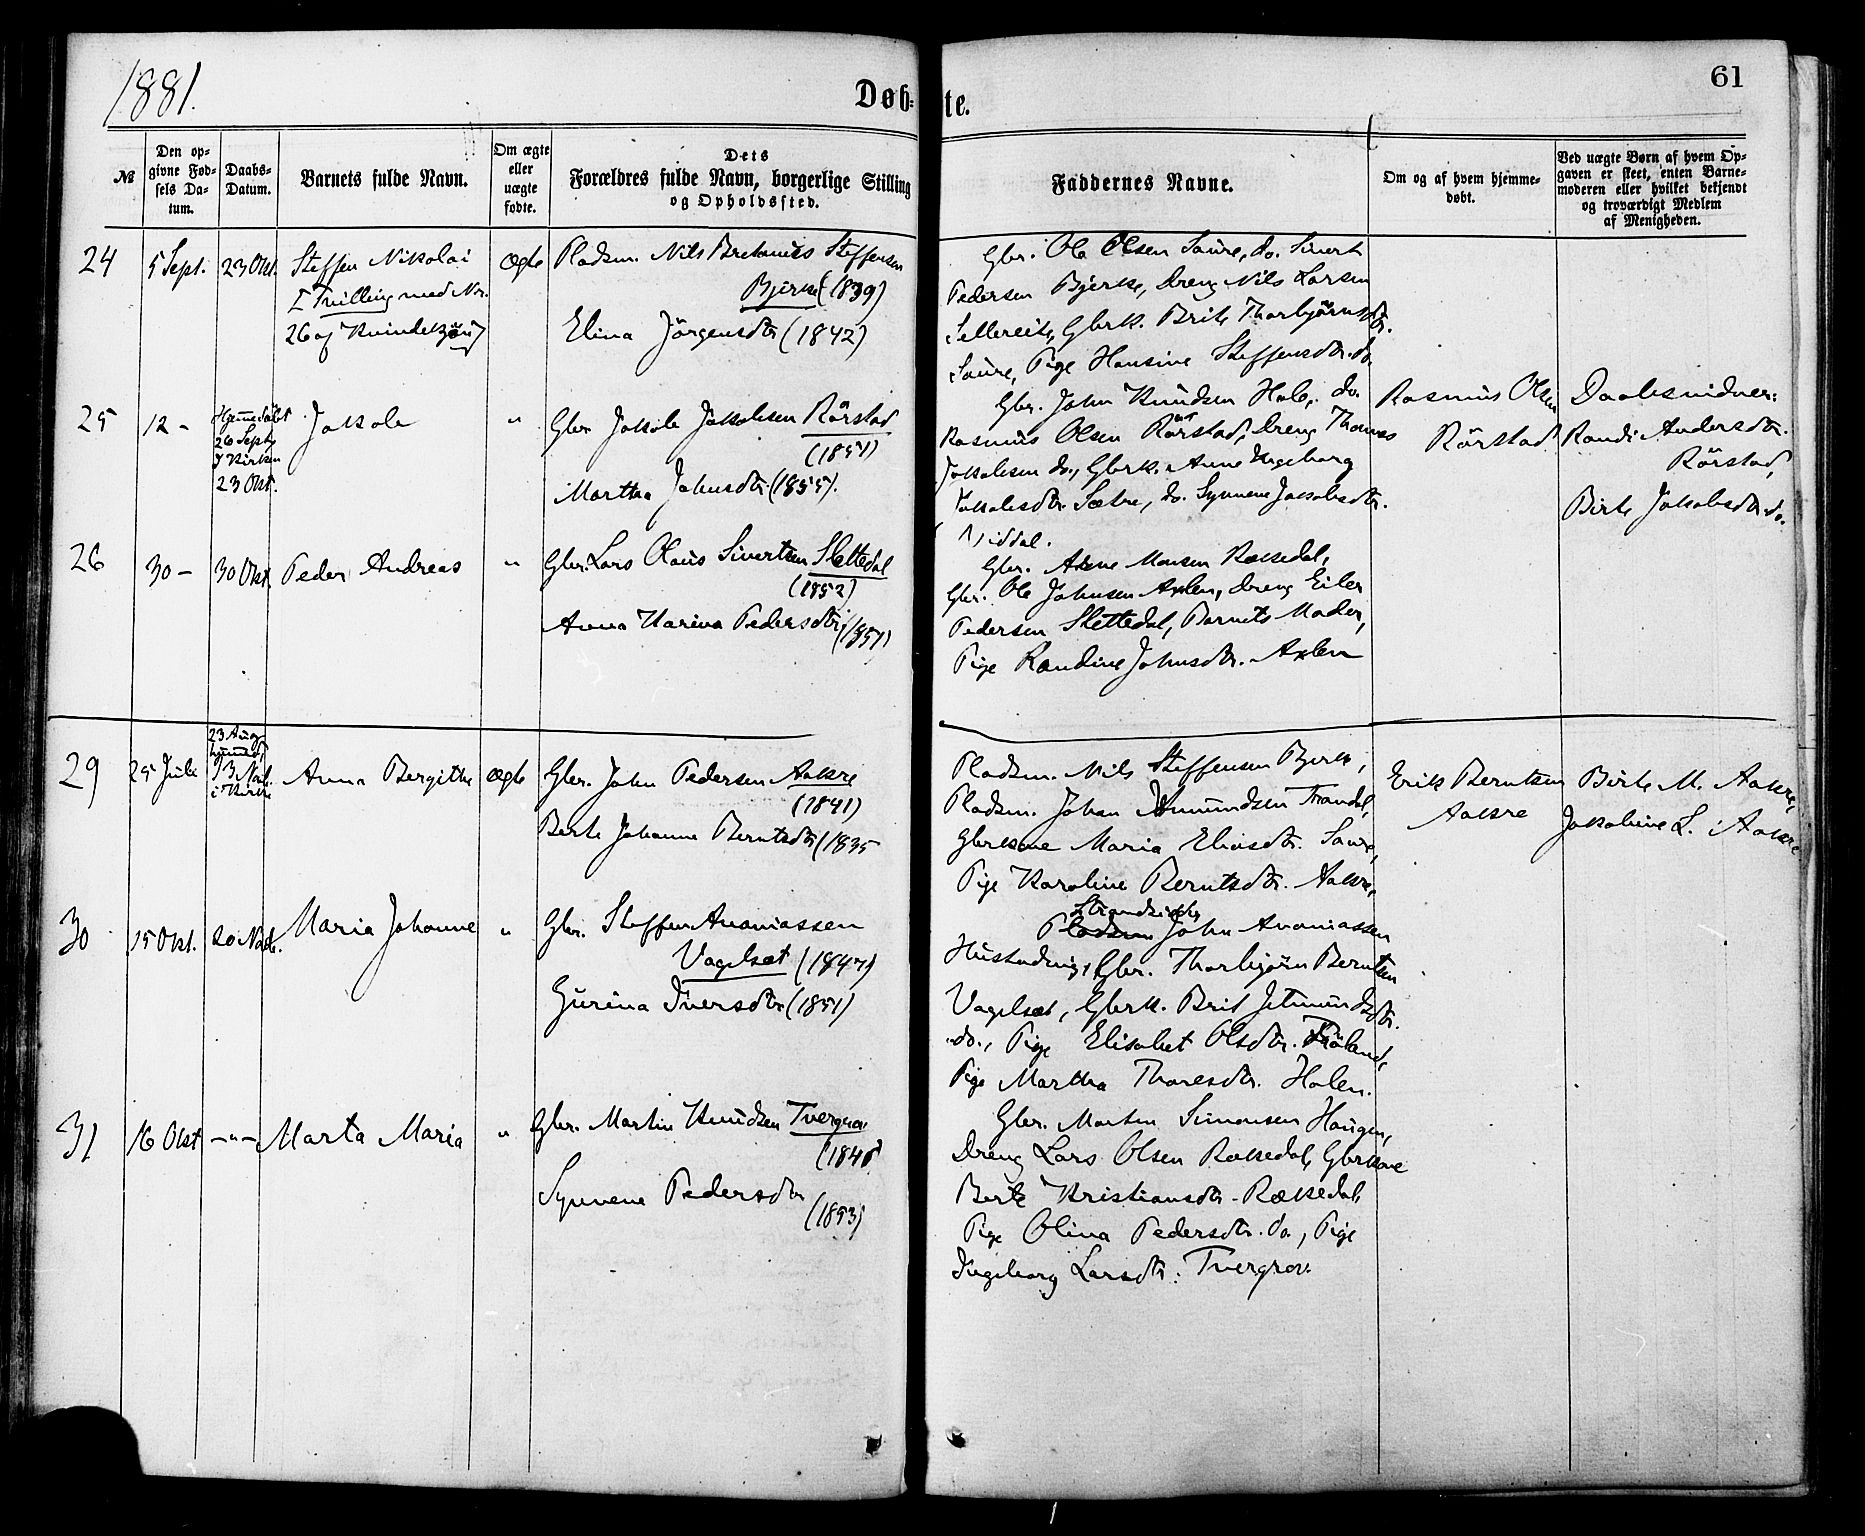 1881.
Døb-
te.
61
№
Den op-
givne Fød-
sels Da-
tum.
Daabs-
Datum.
Barnets fulde Navn.
Om ægte
eller
uægte
fødte.
Dets
Forældres fulde Navn, borgerlige Stilling
og Opholdssted.
Faddernes Navne.
Om og af hvem hjemme-
døbt.
Ved uægte Børn af hvem Op-
gaven er skeet, enten Barne-
moderen eller hvilket bekjendt
og troværdigt Medlem
af Menigheden.
24
5 Sept.
23 Okt.
Steffen Nikolai
[Tvilling med No.
26 af Kvindekjön]
Ægte
Pladsm. Nils Bretanus Steffensen
Bjerke (1839)
Elina Jörgensdtr (1842)
Gbr. Ole Olsen Saure, do. Sivert
Pedersen Bjerke, Dreng Nils Larsen
Sellereite, Gbrk. Brite Thorbjörnsdtr.
Saure, Pige Hansine Steffensdtr. do.
25
12 -
Hjemmedöbt
26 Sept,
I Kirken
23 Okt.
Jakob
"
Gbr Jakob Jakobsen Rörstad
(1851)
Martha Johnsdtr. (1855).
Gbr. John Knudsen Hole, do.
Rasmus Olsen Rörstad, Dreng Thomas
Jakobsen do., Gbrk. Anne Ingeborg
Jakobsdtr. Sætre, do. Synnene Jakobsdtr.
Rasmus Olsen
Rörstad
Daabsvidner:
Randi Andersdtr.
Rörstad,
Birte Jakobsdtr. do.
26
30 -
30 Okt.
Peder Andreas
"
Gbr. Lars Olaus Sivertsen Slettedal
(1852)
Anna Karina Pedersdtr. (1851)
Gbr. Arne Monsen Rekkedal,
Gbr. Ole Johnsen Aslen, Dreng Eiler
Pedersen Slettedal, Barnets Moder,
Pige Randine Johnsdtr. Aslen
29
25 Juli
23 Aug
hjemmed,
13 Nov.
i Kirke
Anna Bergithe
ægte
Gbr. John Pedersen Aakre
(1841)
Berte Johanne Berntsdtr (1835
Pladsm. Nils Steffensen Bjerke,
Pladsm. Johan Amundsen Trandal,
Gbrkone Maria Eliasdtr. Saure,
Pige Karoline Berntsdtr. Aakre,
Erik Berntsen
Aakre
Birte M. Aakre,
Jakobine L. Aakre
30
15 Okt.
20 Novb.
Maria Johanne
"
Gbr. Steffen Ananiassen
Vagelsæt (1847)
Gurina Iversdtr (1851)
Strandsidder
Pladsm John Ananiassen
Hustadnes, Gbr. Thorbjörn Berntsen
Vagelsæt, Gbrk. Brit Jetmundsdtr.
do., Pige Elisabet Olsdtr.
Pige Martha Thoresdtr. Holen.
31
16 Okt
- " -
Marta Maria
"
Gbr. Martin Knudsen Tvergrov
(1846)
Synnene Pedersdtr
(1853)
Gbr. Morten Simonsen Haugen,
Dreng Lars Olsen Rekkedal, Gbrkone
Berte Kristiansdtr. Rekkedal,
Pige Olina Pedersdtr. do, Pige
Ingeborg Larsdtr. Tvergrov.